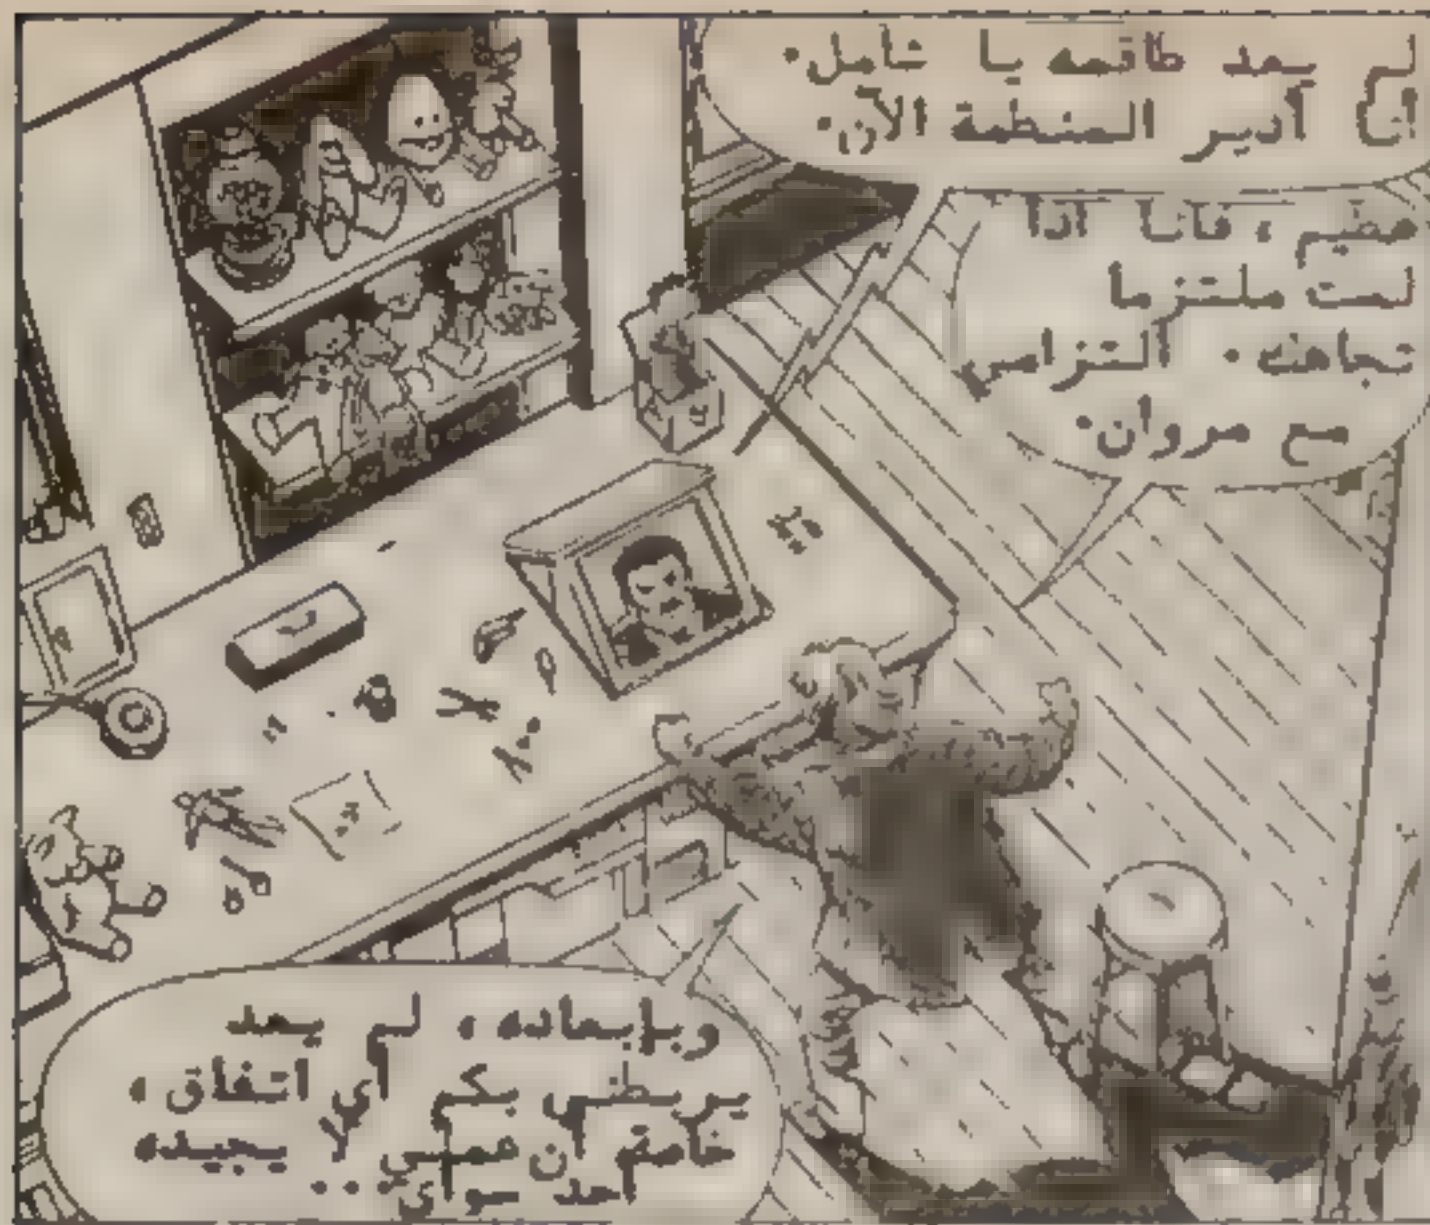 لم يعد طاقمه يا شامل.
أنا أدير المنظمة الآن.
عظيم، فأنا اذا
لست ملتزما
تجاهك. التزامي
مع مروان.
وبإبعاده، لم يعد
يربطني بكم أي اتفاق،
خاصة أن عملي لا يجيده
أحد سواي...